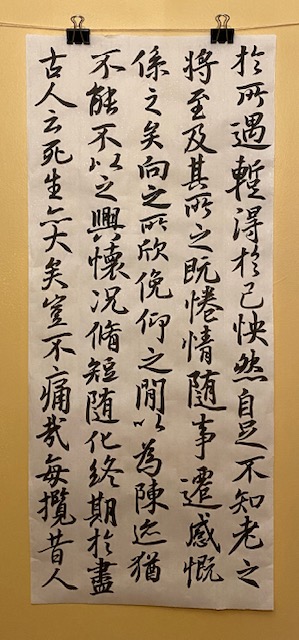 於所遇蹔得於己怏然自足不知老之
將至及其所之既惓情随事遷感慨
係之矣向之所欣俛仰之間以為陳迹猶
不能不以之興懷况脩短随化終期於盡
古人云死生亦大矣豈不痛哉每攬昔人